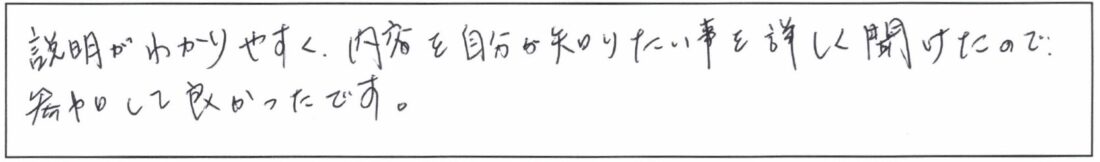 説明がわかりやすく、内容を自分が知りたい事を詳しく聞けたので、
参加して良かったです。